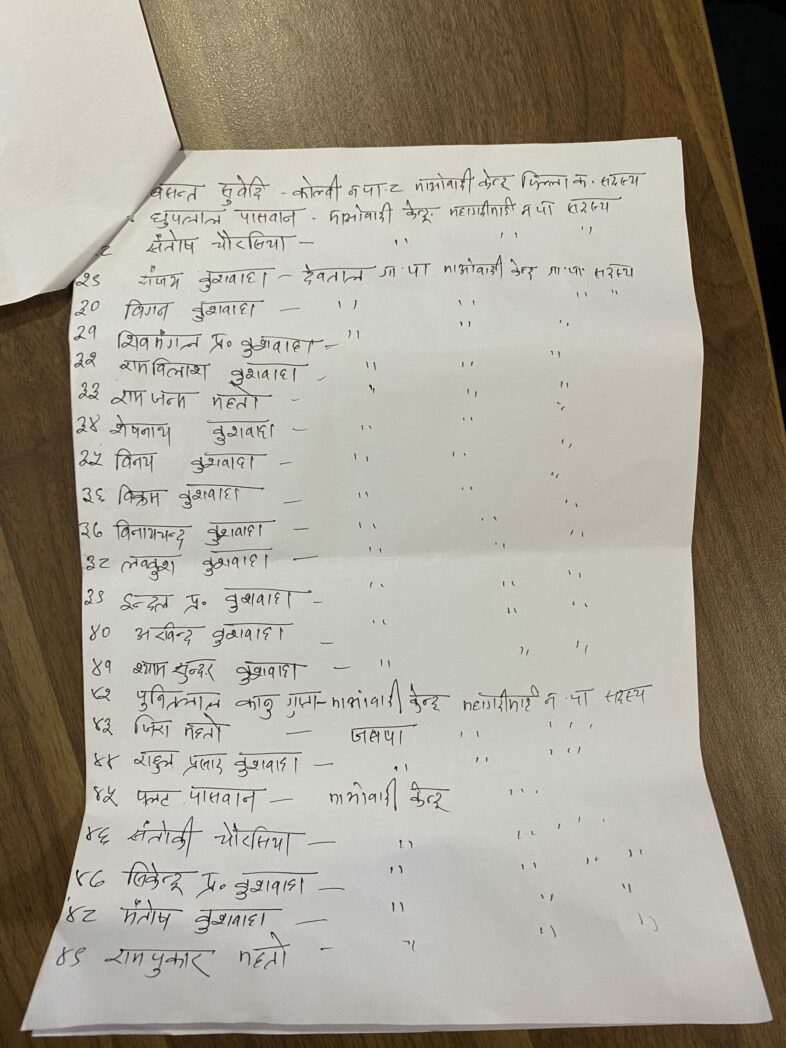 बसन्त सुवेदि - कोल्वी न पा २ माओवादी केन्द्र जिल्ला क. सदस्य
धुपलाल पासवान - माओवादी केन्द्र महागढीमाई न पा सदस्य
संतोष चौरसिया - " " "
२९ संजय कुशवाहा - देवताल गा. पा माओवादी केन्द्र गा. पा. सदस्य
३० विगन कुशवाहा - " " " "
३१ शिवमंगल प्र. कुशवाहा - " " "
३२ रामविलाश कुशवाहा - " " "
३३ राम जन्म महतो - " " "
३४ शेषनाथ कुशवाहा - " " "
३५ विनय कुशवाहा - " " "
३६ विक्रम कुशवाहा - " " "
३७ विनायचन्द्र कुशवाहा - " " "
३८ लवकुश कुशवाहा - " " "
३९ इन्दल प्र. कुशवाहा - " " "
४० अरविन्द कुशवाहा - " " "
४१ श्याम सुन्दर कुशवाहा - " " "
४२ पुनितलाल कानु गुप्ता - माओवादी केन्द्र महागढीमाई न. पा सदस्य
४३ जिरा महतो - जसपा " "
४४ राहुल प्रसाद कुशवाहा - " " "
४५ पलट पासवान - माओवादी केन्द्र "
४६ संतोकी चौरसिया - " " " "
४७ जिकेन्द्र प्र. कुशवाहा - " " " "
४८ मंतोष कुशवाहा - " " "
४९ रामपुकार महतो - " " "